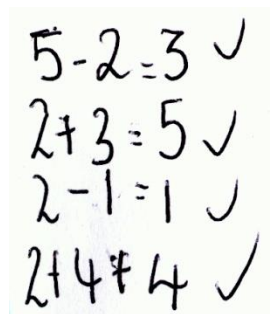 5-2=3 ✓
2+3=5 ✓
2-1=1 ✓
2+4≠4 ✓